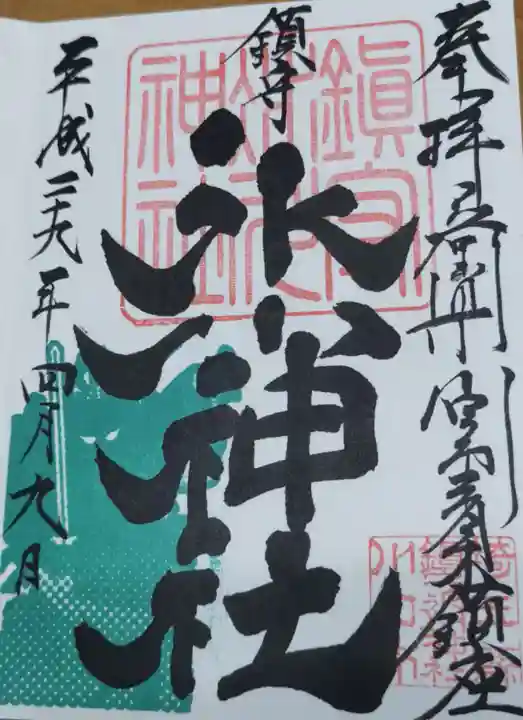 奉拝
青木鎮座
鎮守
氷川神社
平成二十九年四月九日
鎮守
氷川
神社